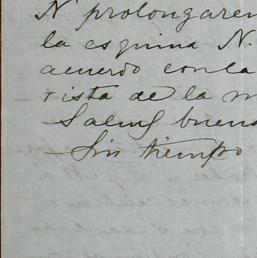 N prolongaren
la esquina N.
acuerdo con la
vista de la m
Salud buena
Sin tiempo